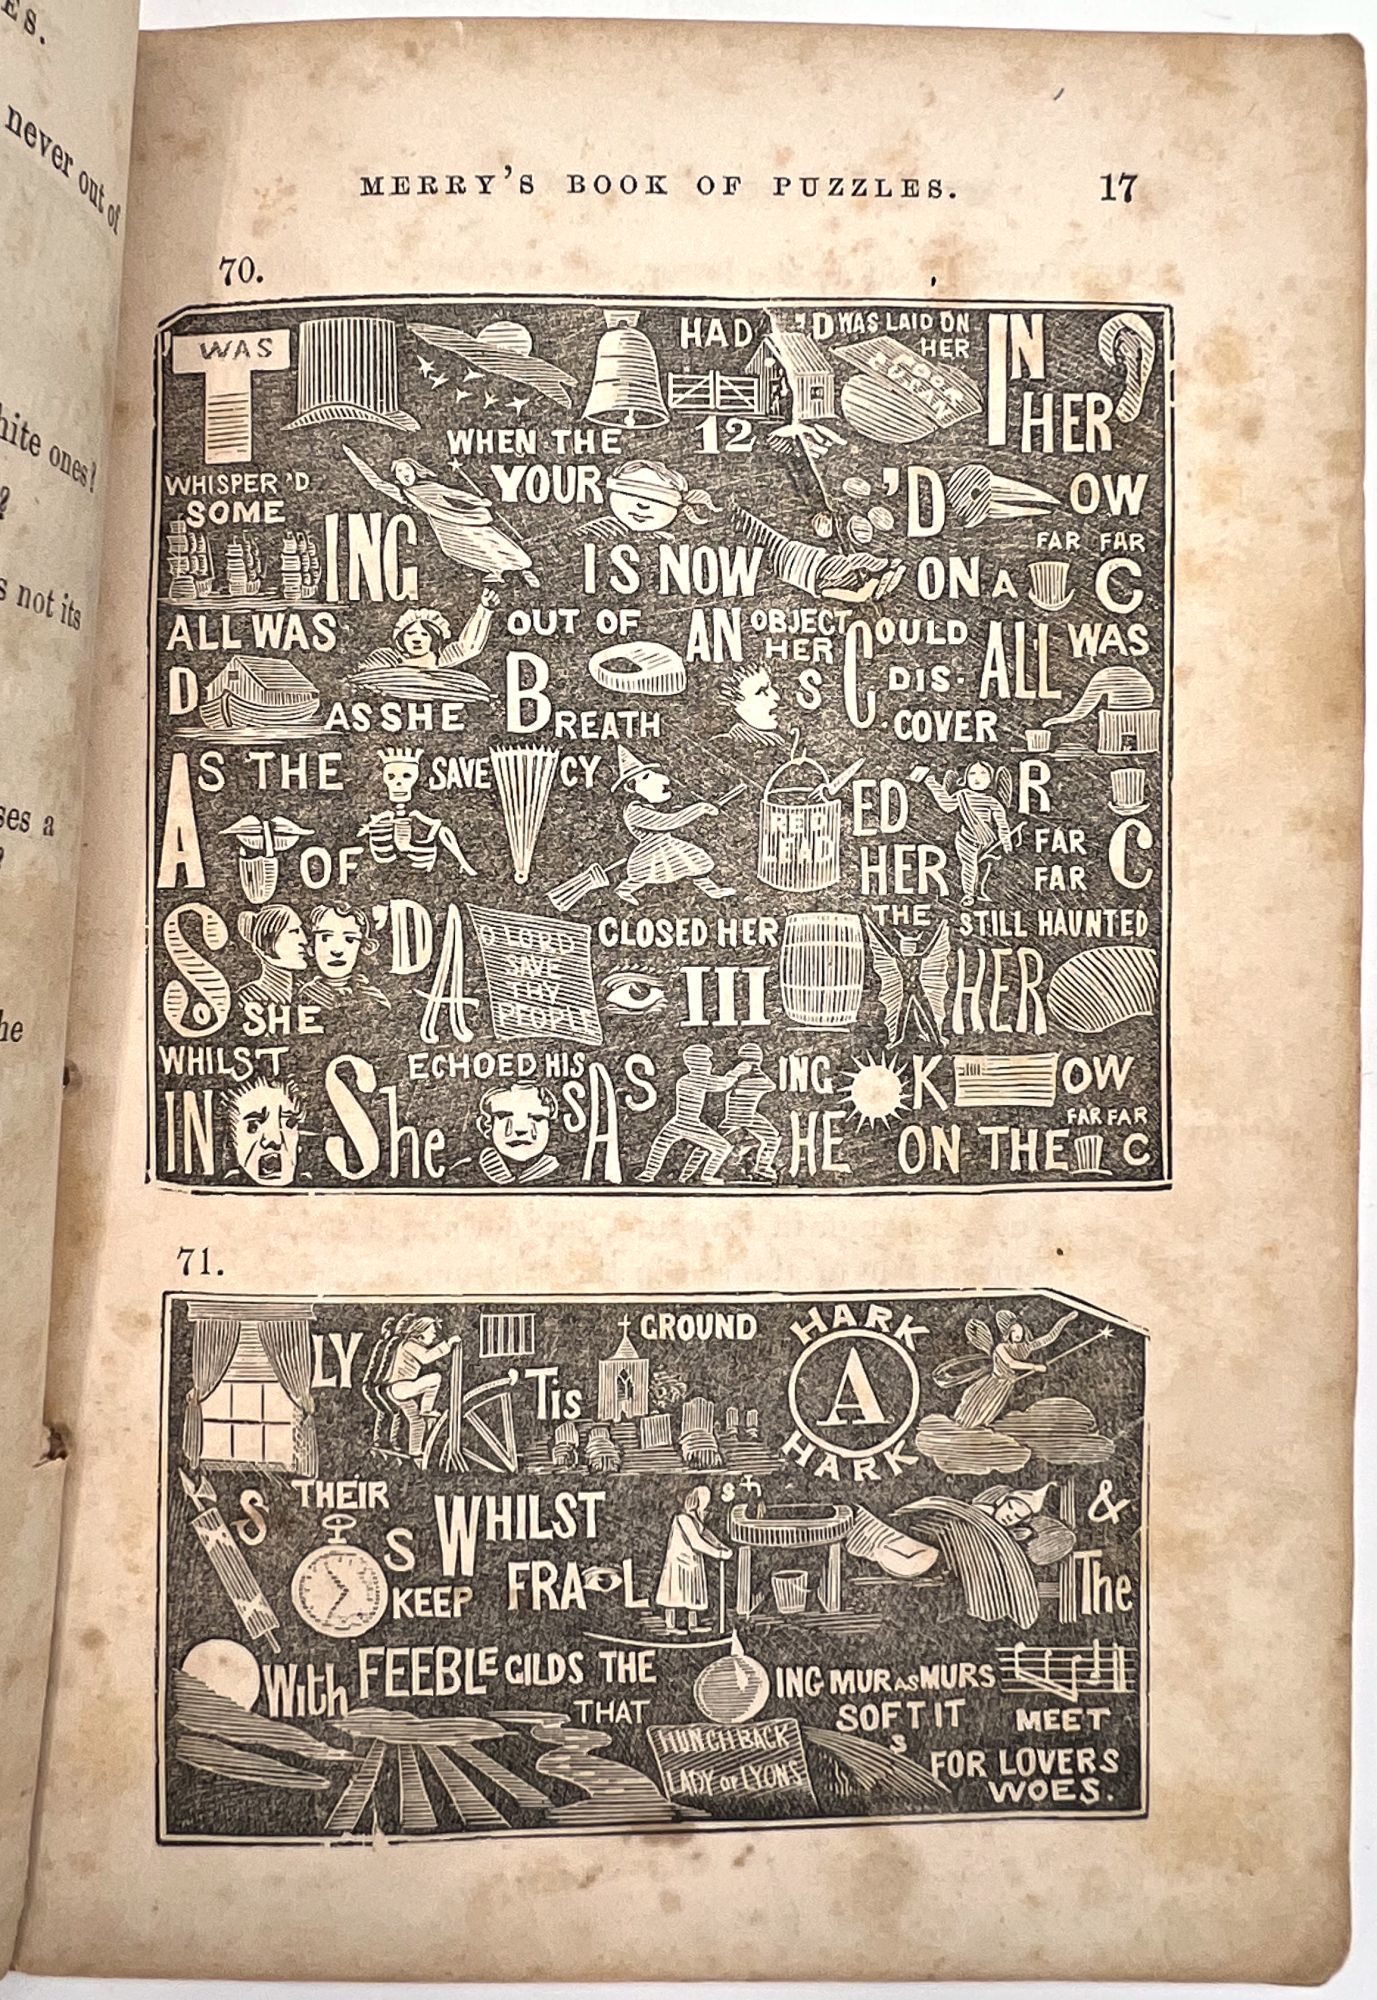 ES.
never out of
hite ones?
?
s not its
ses a
?
he
MERRY'S BOOK OF PUZZLES. 17
70.
WAS T HAD 'D WAS LAID ON HER IN HER
WHEN THE 12
WHISPER'D SOME ING YOUR IS NOW 'D ON A OW FAR FAR C
ALL WAS D AS SHE OUT OF BREATH AN OBJECT HER S COULD DISCOVER ALL WAS
AS THE OF SAVE CY RED LEAD ED HER R FAR FAR C
S SO SHE 'D A O LORD SAVE THY PEOPLE CLOSED HER III THE STILL HAUNTED HER
WHILST IN She ECHOED HIS S AS ING HE K OW ON THE FAR FAR C
71.
LY 'Tis GROUND HARK A HARK
S THEIR S KEEP WHILST FRA L sth & The
With FEEBLE GILDS THE THAT ING MUR AS MURS SOFT IT MEET
HUNCHBACK LADY OF LYONS S FOR LOVERS WOES.